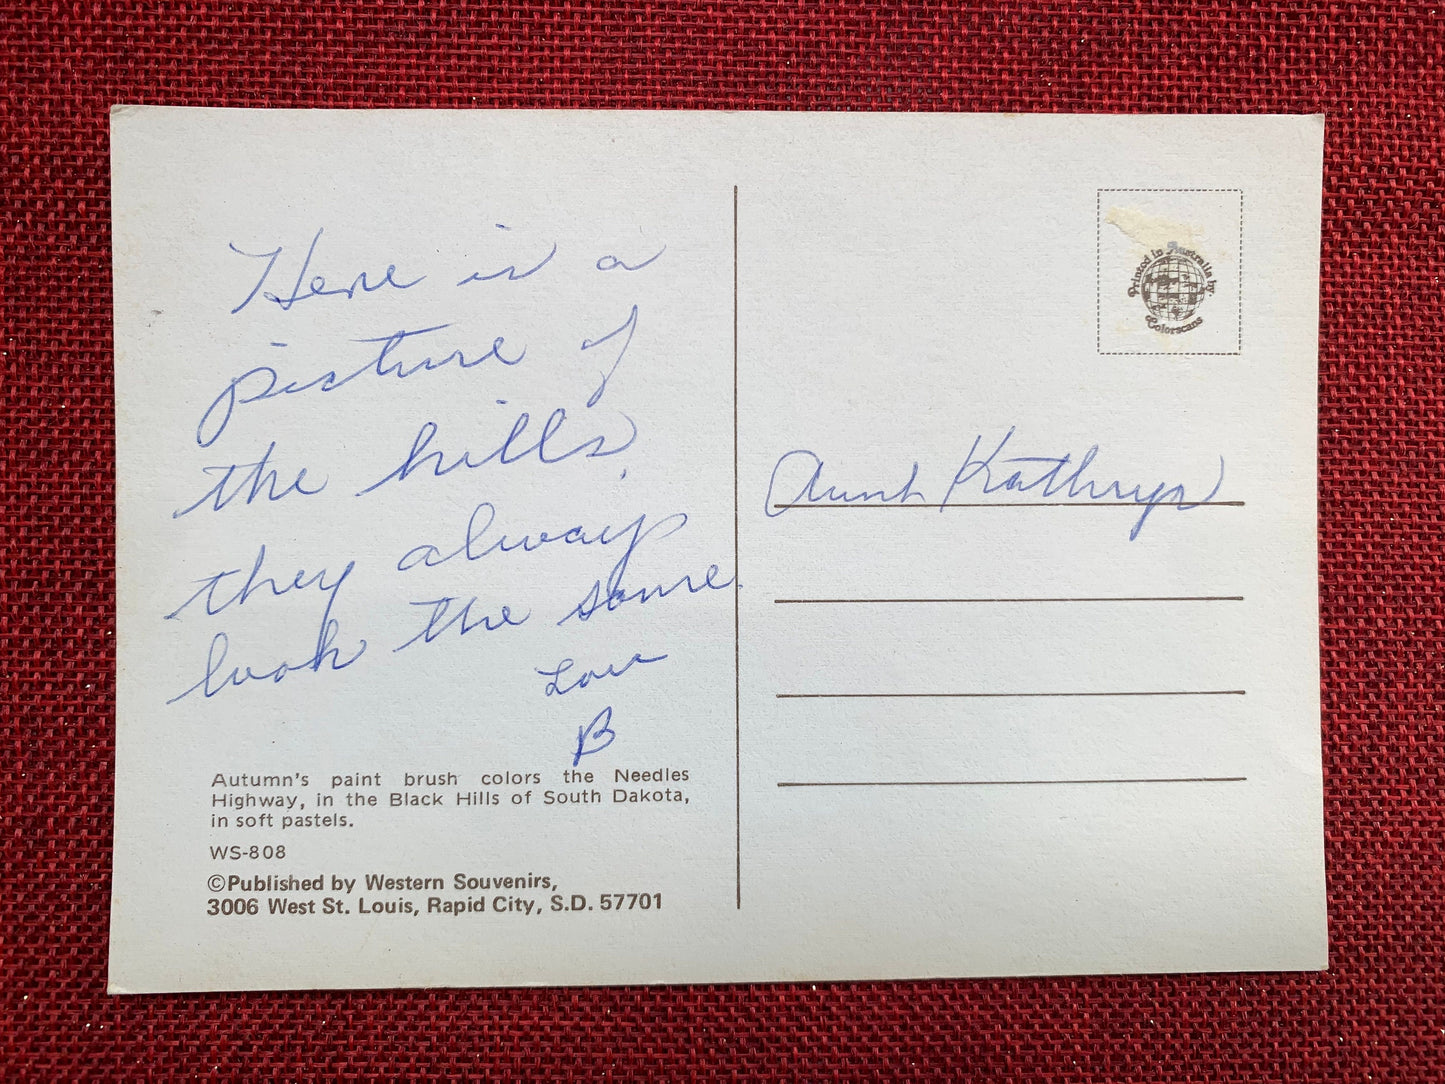 Here is a
picture of
the hills,
they always
look the same.
Love
B
Autumn's paint brush colors the Needles
Highway, in the Black Hills of South Dakota,
in soft pastels.
WS-808
©Published by Western Souvenirs,
3006 West St. Louis, Rapid City, S.D. 57701
Printed in Australia by:
Colorscans
Aunt Kathryn